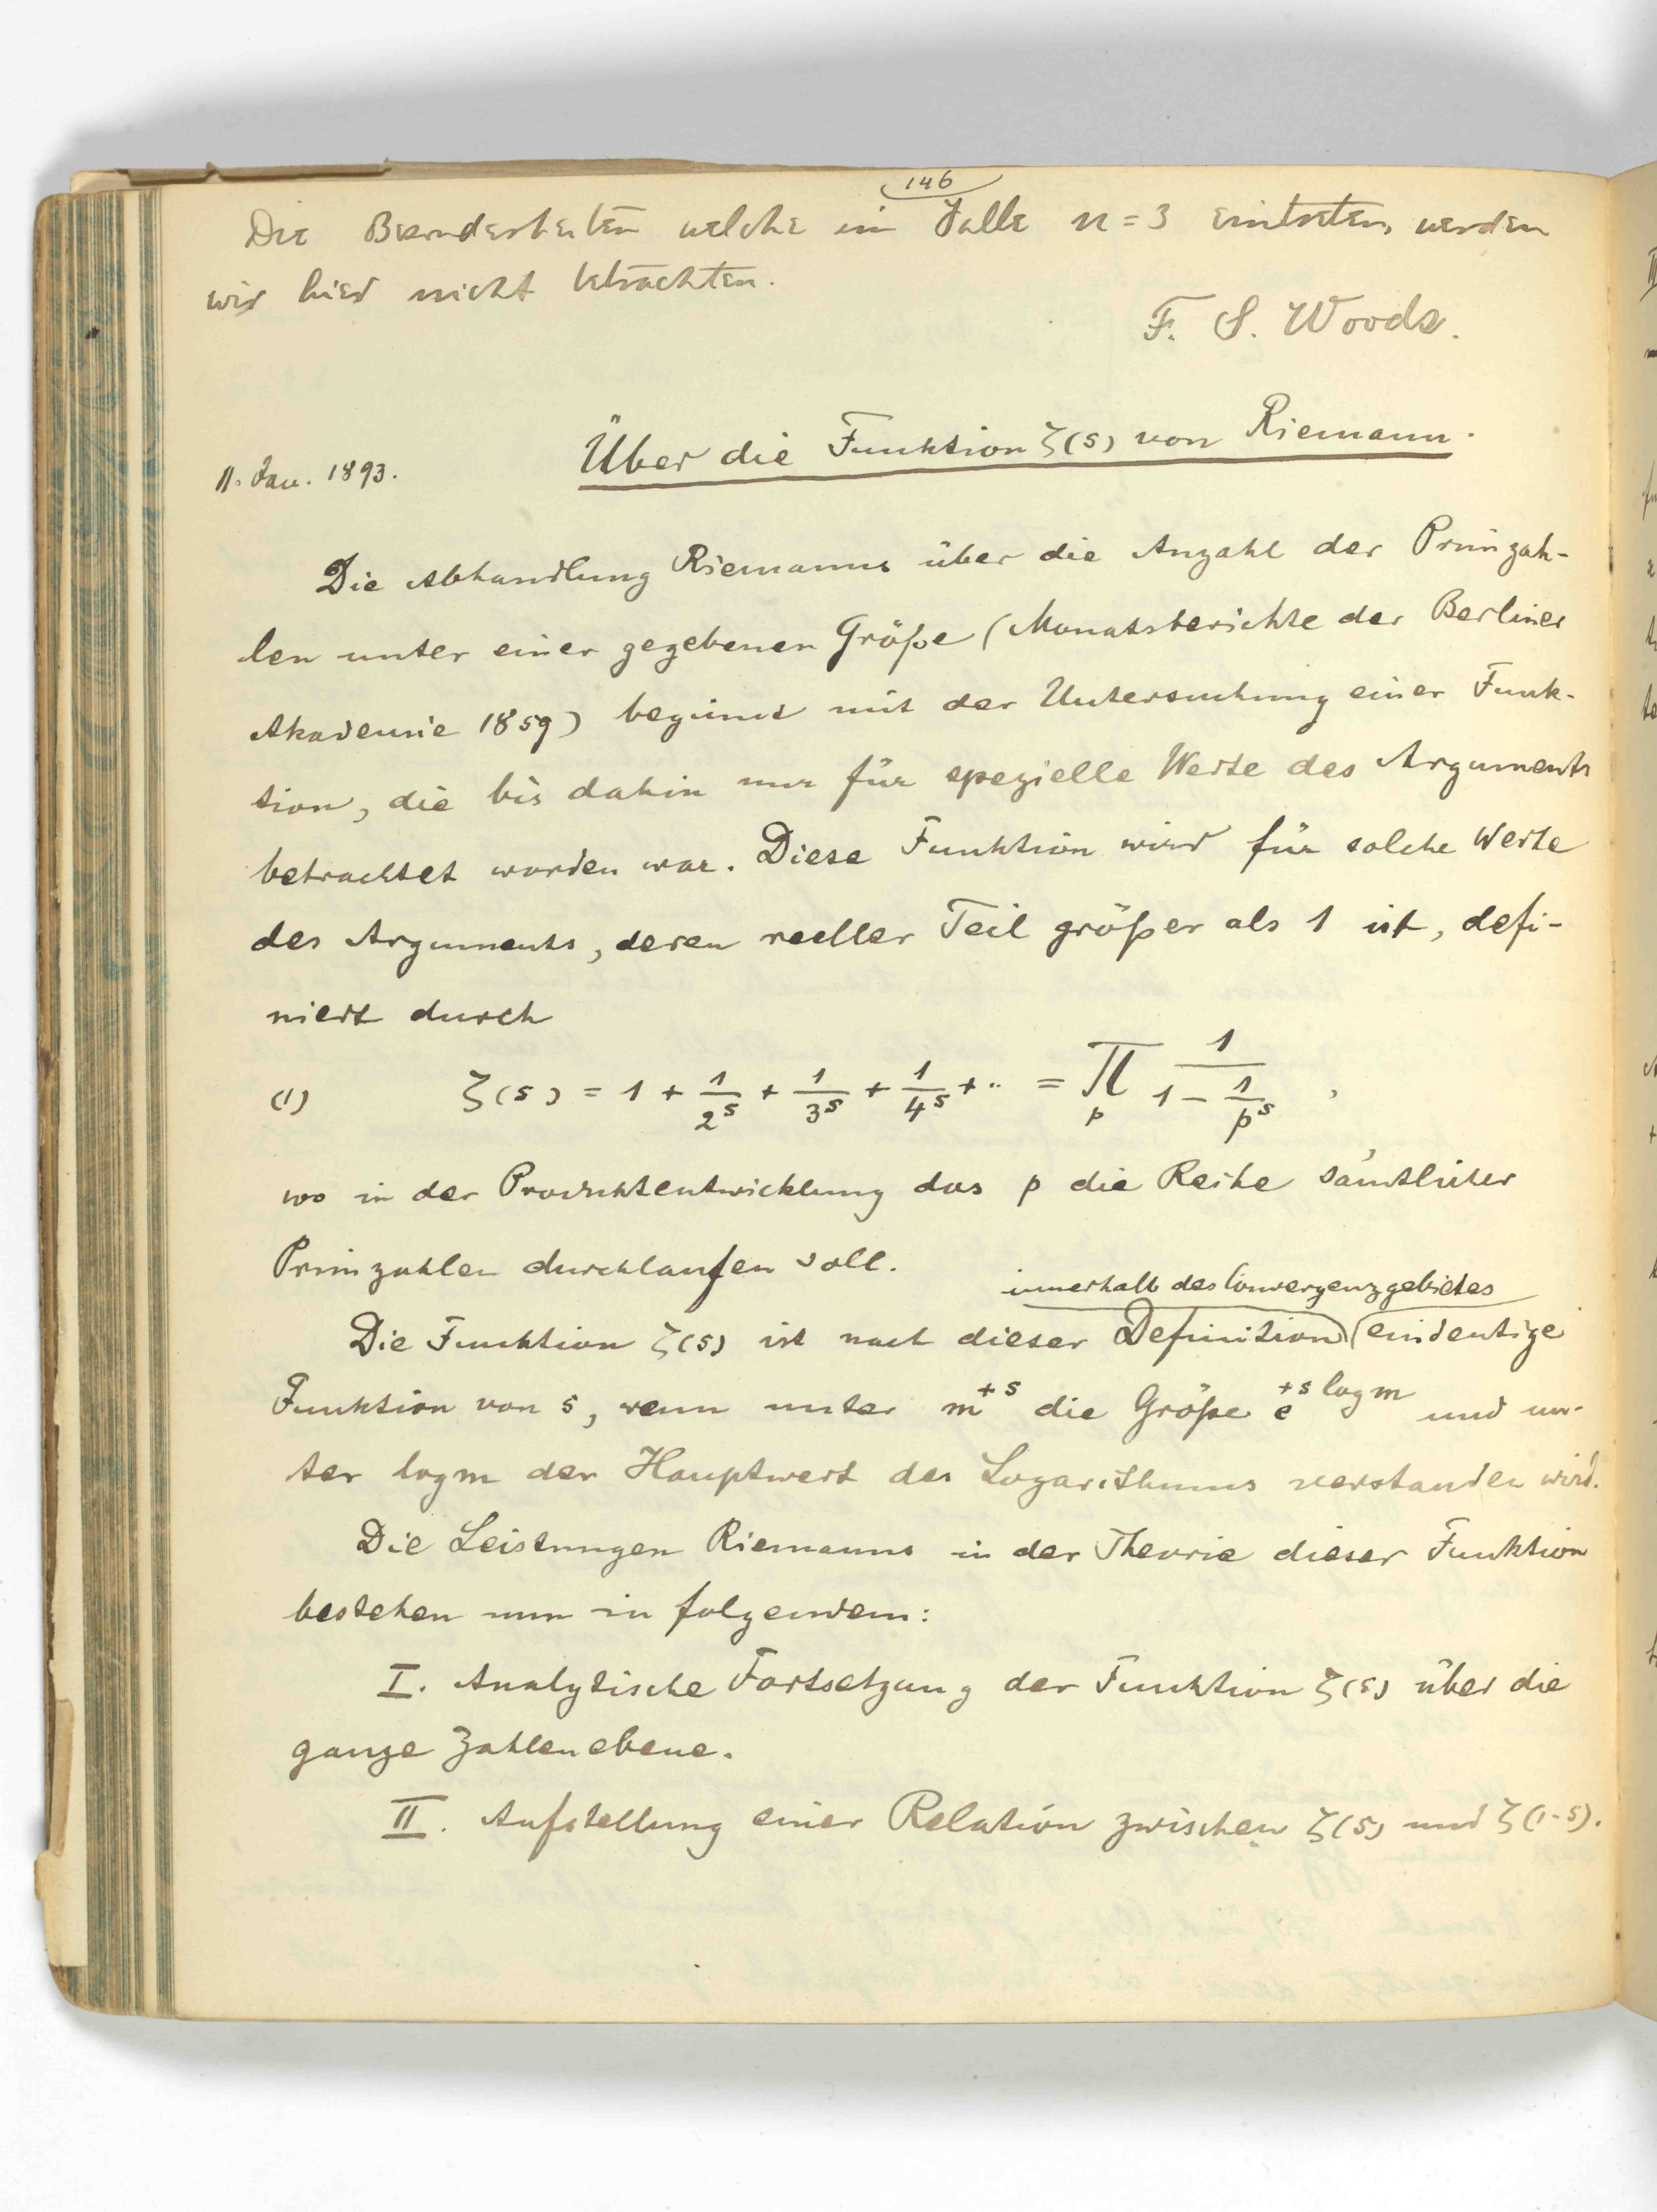 146
Die Besonderheiten welche im Falle n = 3 eintreten, werden
wir hier nicht betrachten.
F. S. Woods.
11. Jan. 1893.
Über die Funktion ζ(s) von Riemann.
Die Abhandlung Riemanns über die Anzahl der Primzah-
len unter einer gegebenen Größe (Monatsberichte der Berliner
Akademie 1859) beginnt mit der Untersuchung einer Funk-
tion, die bis dahin nur für spezielle Werte des Arguments
betrachtet worden war. Diese Funktion wird für solche Werte
des Arguments, deren reeller Teil größer als 1 ist, defi-
niert durch
(1) ζ(s) = 1 + 1/2^s + 1/3^s + 1/4^s + ·· = ∏_p 1/(1 - 1/p^s) ,
wo in der Produktentwicklung das p die Reihe sämtlicher
Primzahlen durchlaufen soll.
innerhalb des Convergenzgebietes
Die Funktion ζ(s) ist nach dieser Definition eindeutige
Funktion von s, wenn unter m^{+s} die Größe e^{+s log m} und un-
ter log m der Hauptwert des Logarithmus verstanden wird.
Die Leistungen Riemanns in der Theorie dieser Funktion
bestehen nun in folgendem:
I. Analytische Fortsetzung der Funktion ζ(s) über die
ganze Zahlenebene.
II. Aufstellung einer Relation zwischen ζ(s) und ζ(1-s).